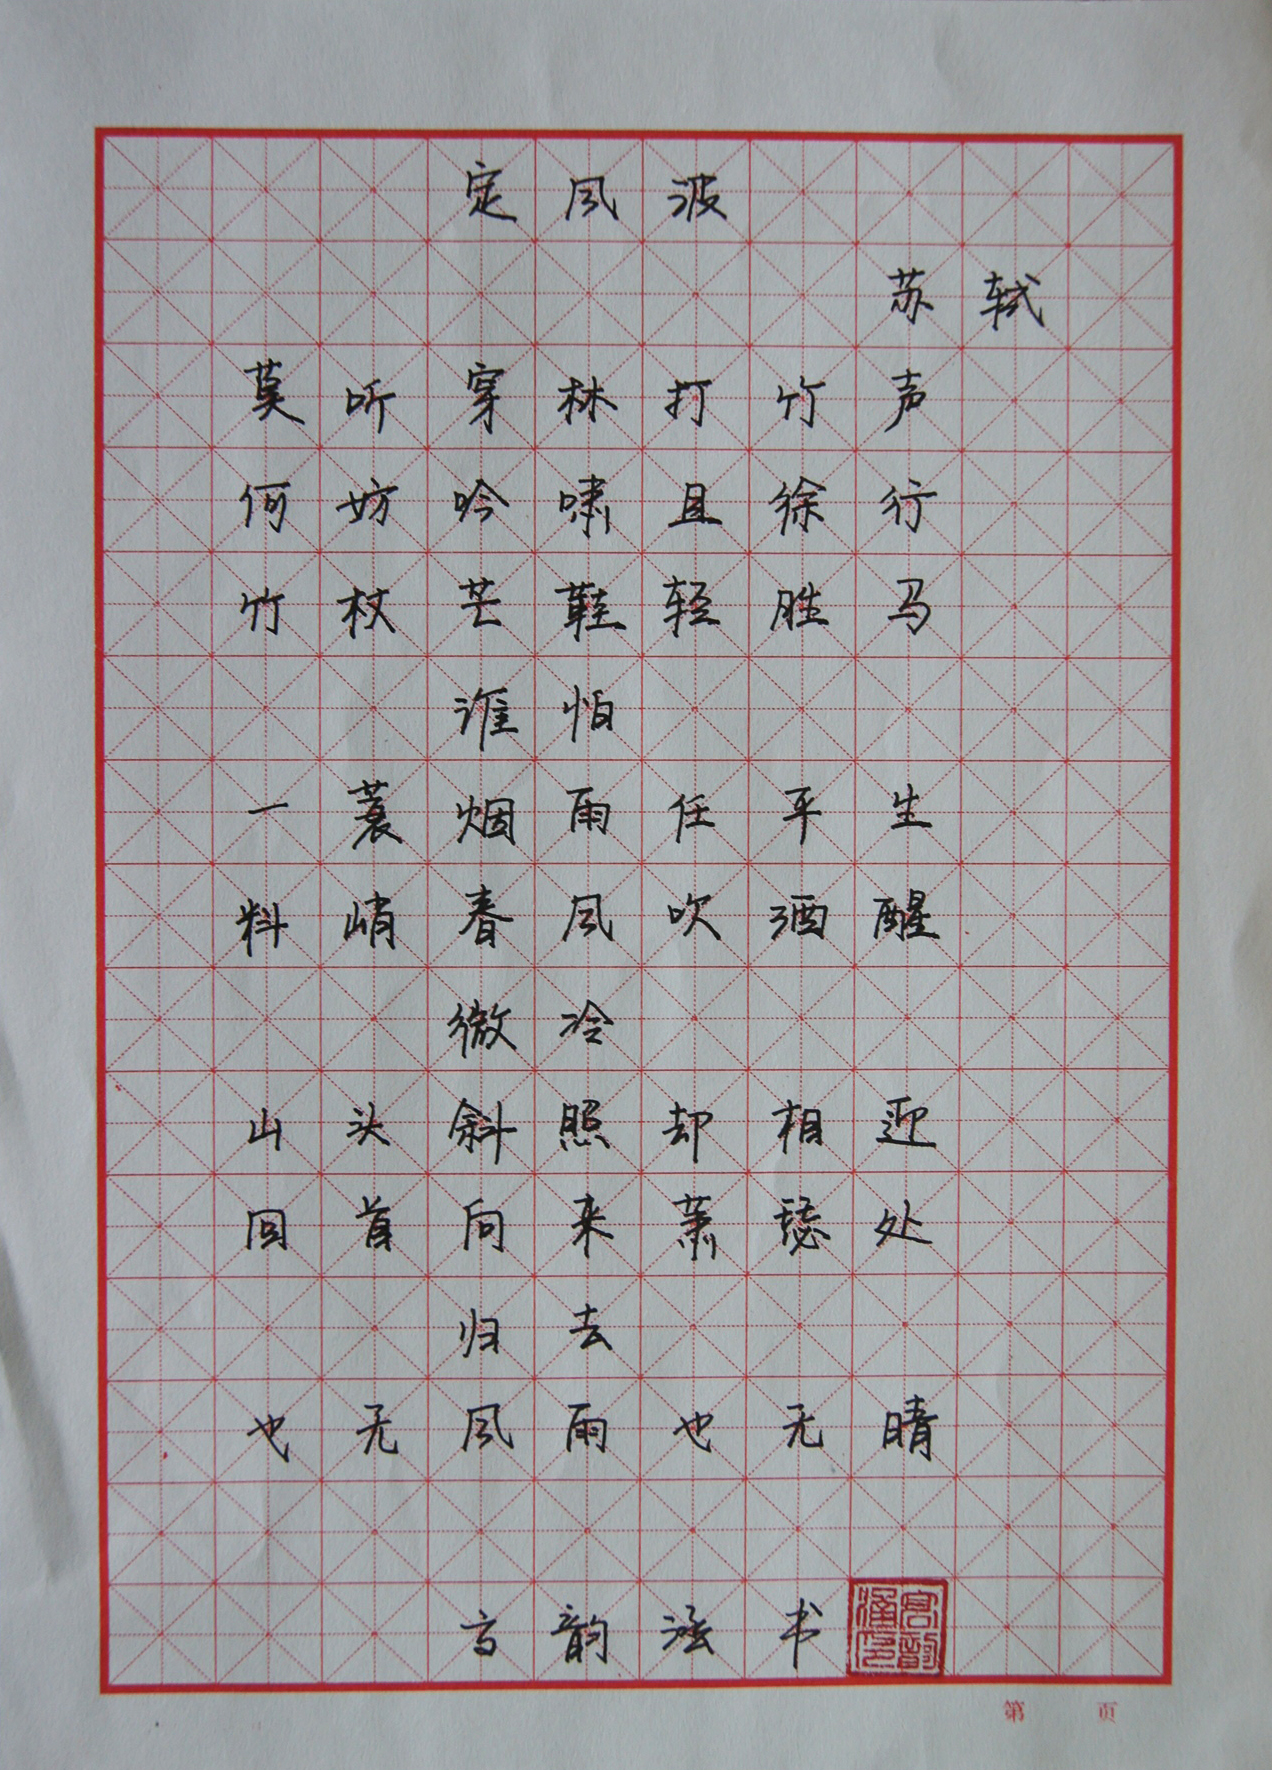 定风波
苏轼
莫听穿林打竹声
何妨吟啸且徐行
竹杖芒鞋轻胜马
谁怕
一蓑烟雨任平生
料峭春风吹酒醒
微冷
山头斜照却相迎
回首向来萧瑟处
归去
也无风雨也无晴
高韵涵书
第 页